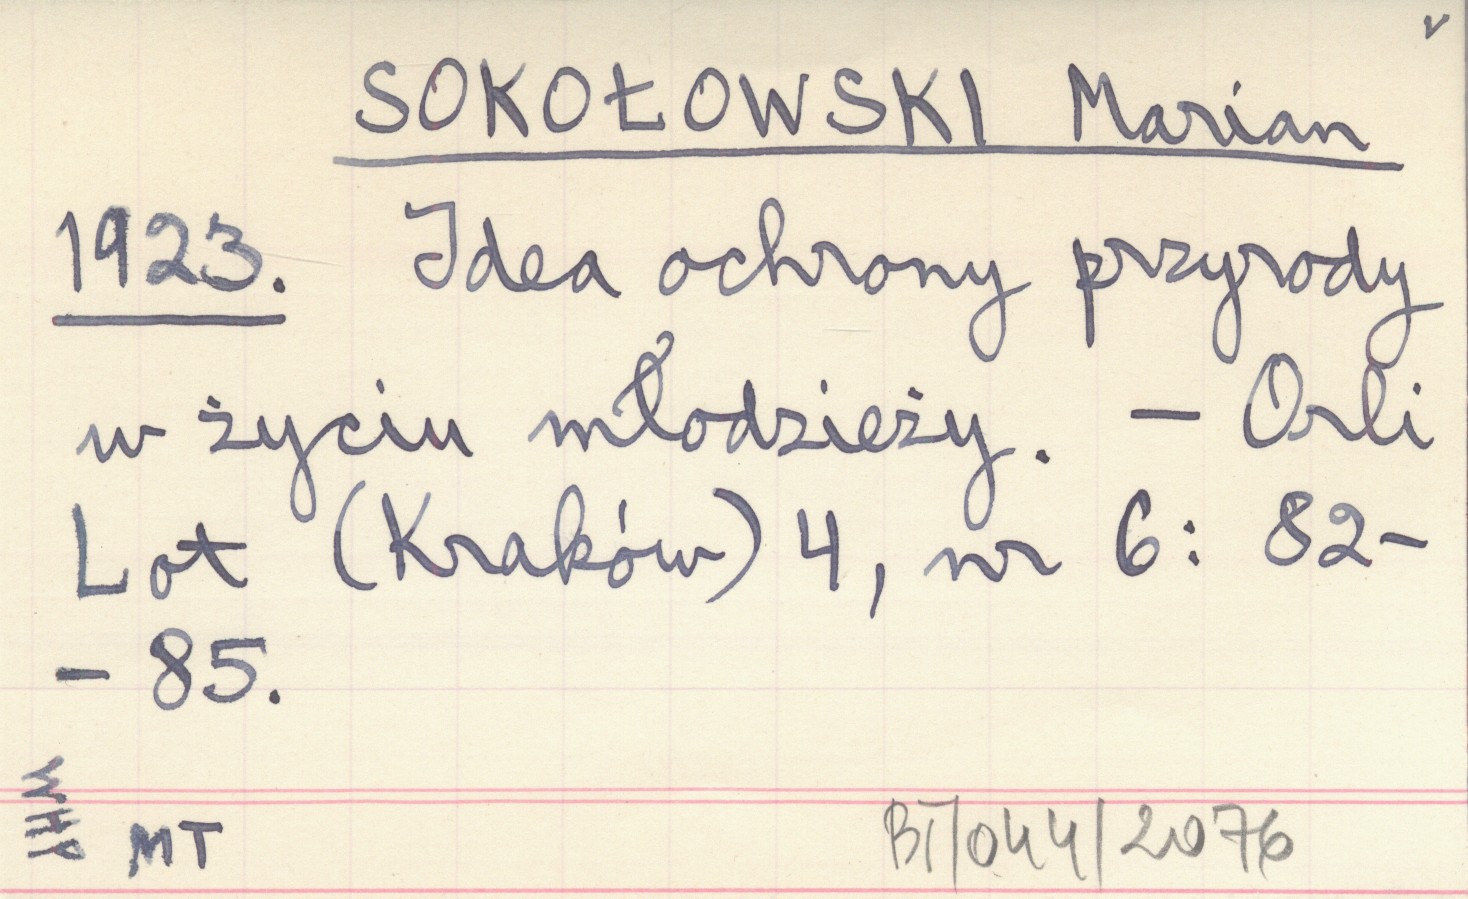 v
SOKOŁOWSKI Marian
1923. Idea ochrony przyrody
w życiu młodzieży. – Orli
Lot (Kraków) 4, nr 6: 82-
- 85.
WHY
MT
BT/044/2076